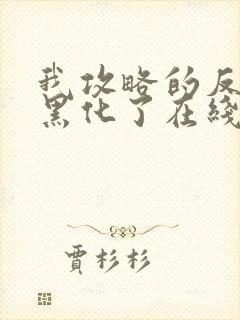 我攻略的反
黑化了在线
賈杉杉